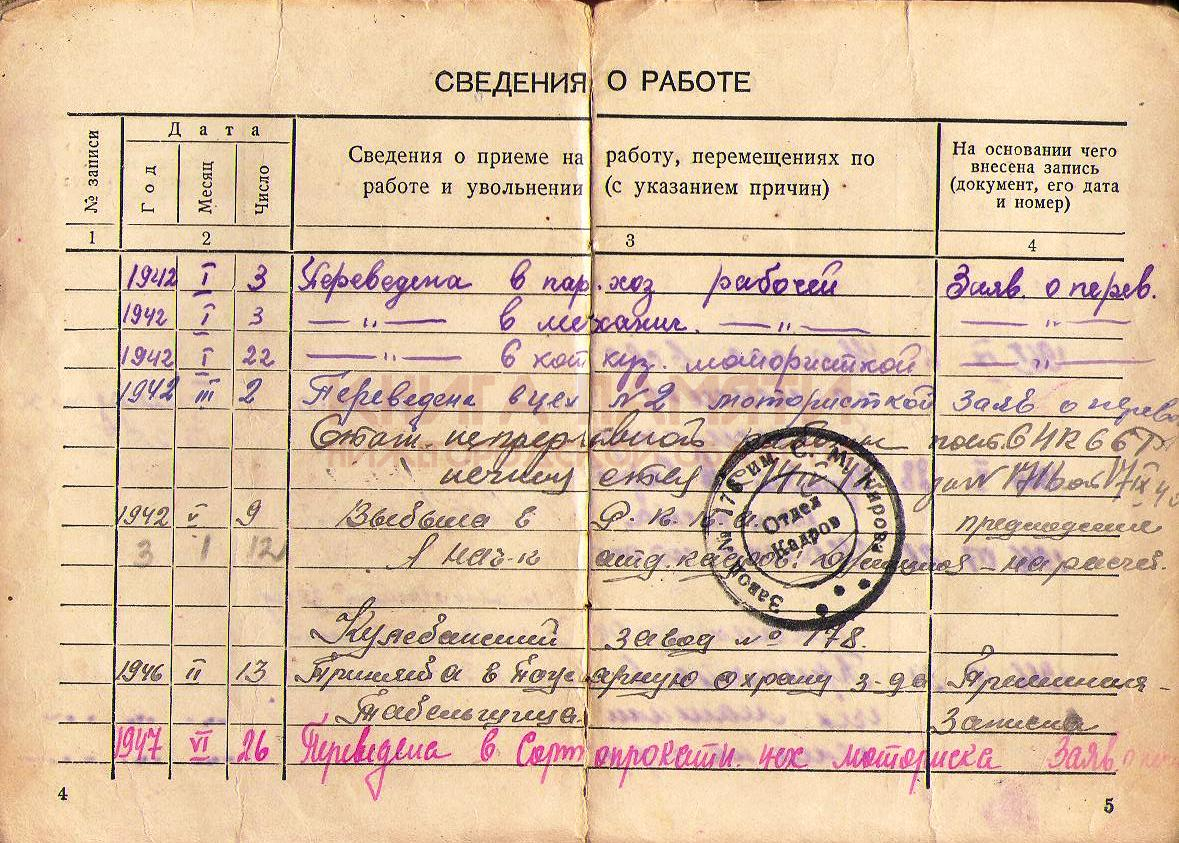 СВЕДЕНИЯ О РАБОТЕ
№ записи
Дата
Год
Месяц
Число
Сведения о приеме на работу, перемещениях по
работе и увольнении (с указанием причин)
На основании чего
внесена запись
(документ, его дата
и номер)
1 2 3 4
1942 I 3 Переведена в пар. хоз рабочей Заяв. о перев.
1942 I 3 — " — в механич. — " — — " —
1942 I 22 — " — в кот куз. мотористкой — " —
1942 III 2 Переведена в цех №2 мотористкой Заяв о перев
Стаж непрерывной работы
1942 V 9 Выбыла в Р.К.К.А.
3 1 12 нач-к отд. кадров:
Завод № 178 им. С. М. Кирова
Отдел
Кадров
Кулебакский завод № 178.
1946 II 13 Принята в пожарную охрану з-да Приемная-
Табельщица. Записка
1947 VI 26 Переведена в Сортопрокатн. цех моториска Заяв. о пер
4
5